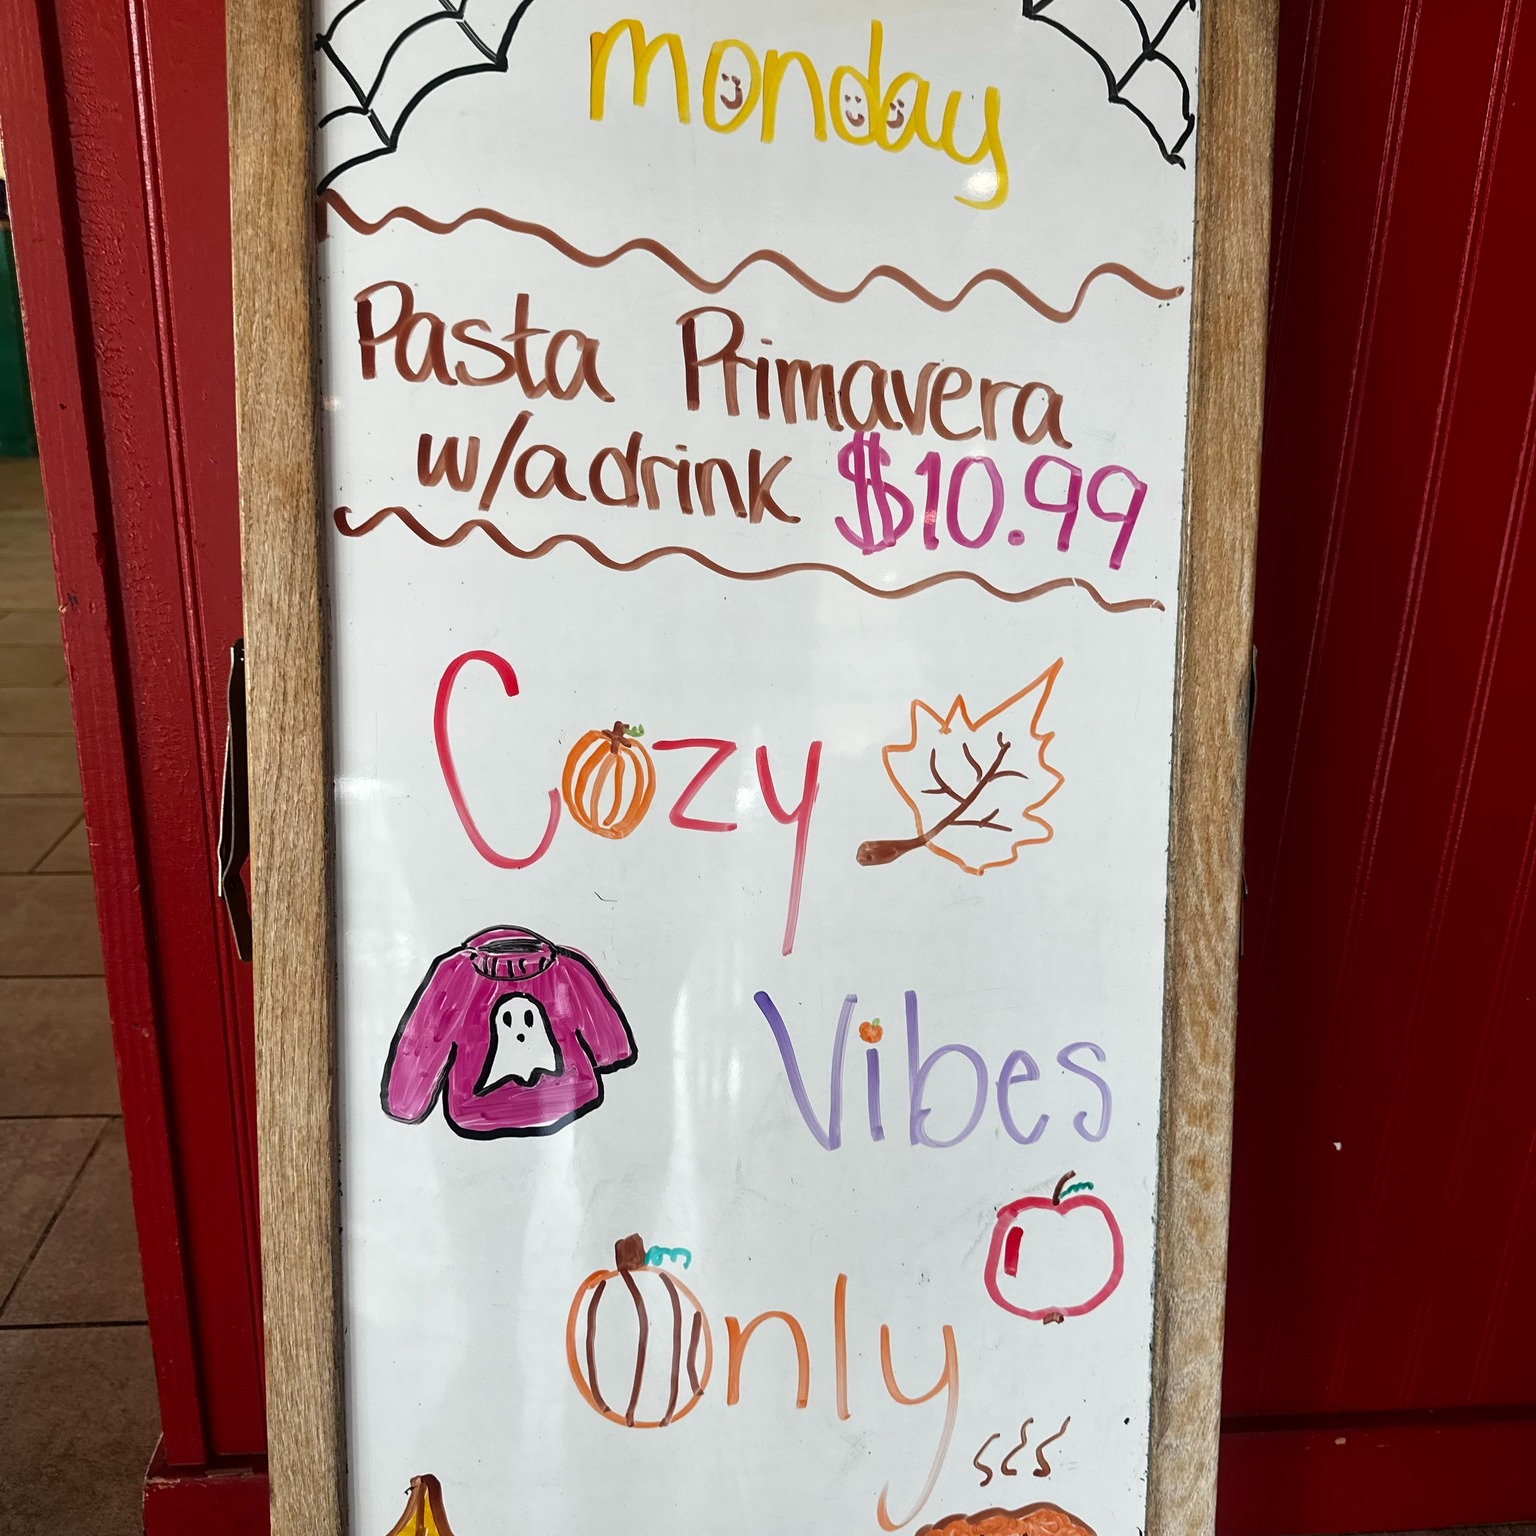 monday
Pasta Primavera
w/a drink $10.99
Cozy
Vibes
Only